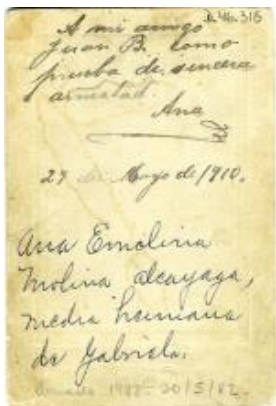 A mi amigo
Juan B. como
prueba de sincera
amistad.
Ana
29 de Mayo de 1910.
Ana Emelina
Molina Alcayaga,
media hermana
de Gabriela.
20/5/82.